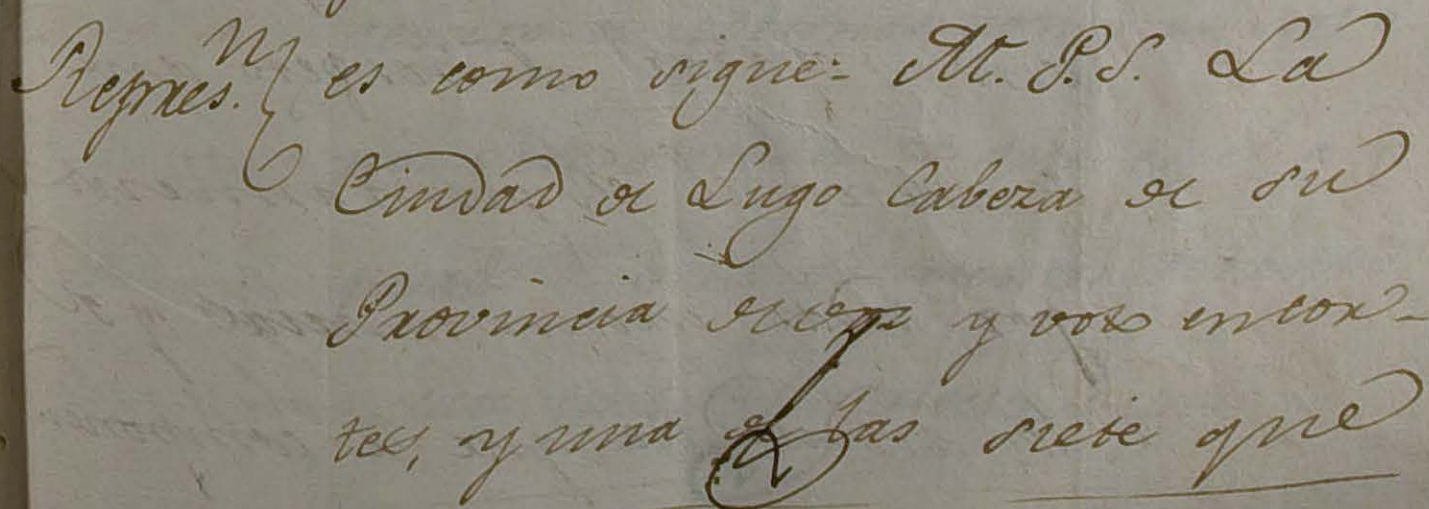 Represn. es como sigue= M. P. S. La
Ciudad de Lugo Cabeza de su
Provincia de voz y voto en cor-
tes, y una de las siete que